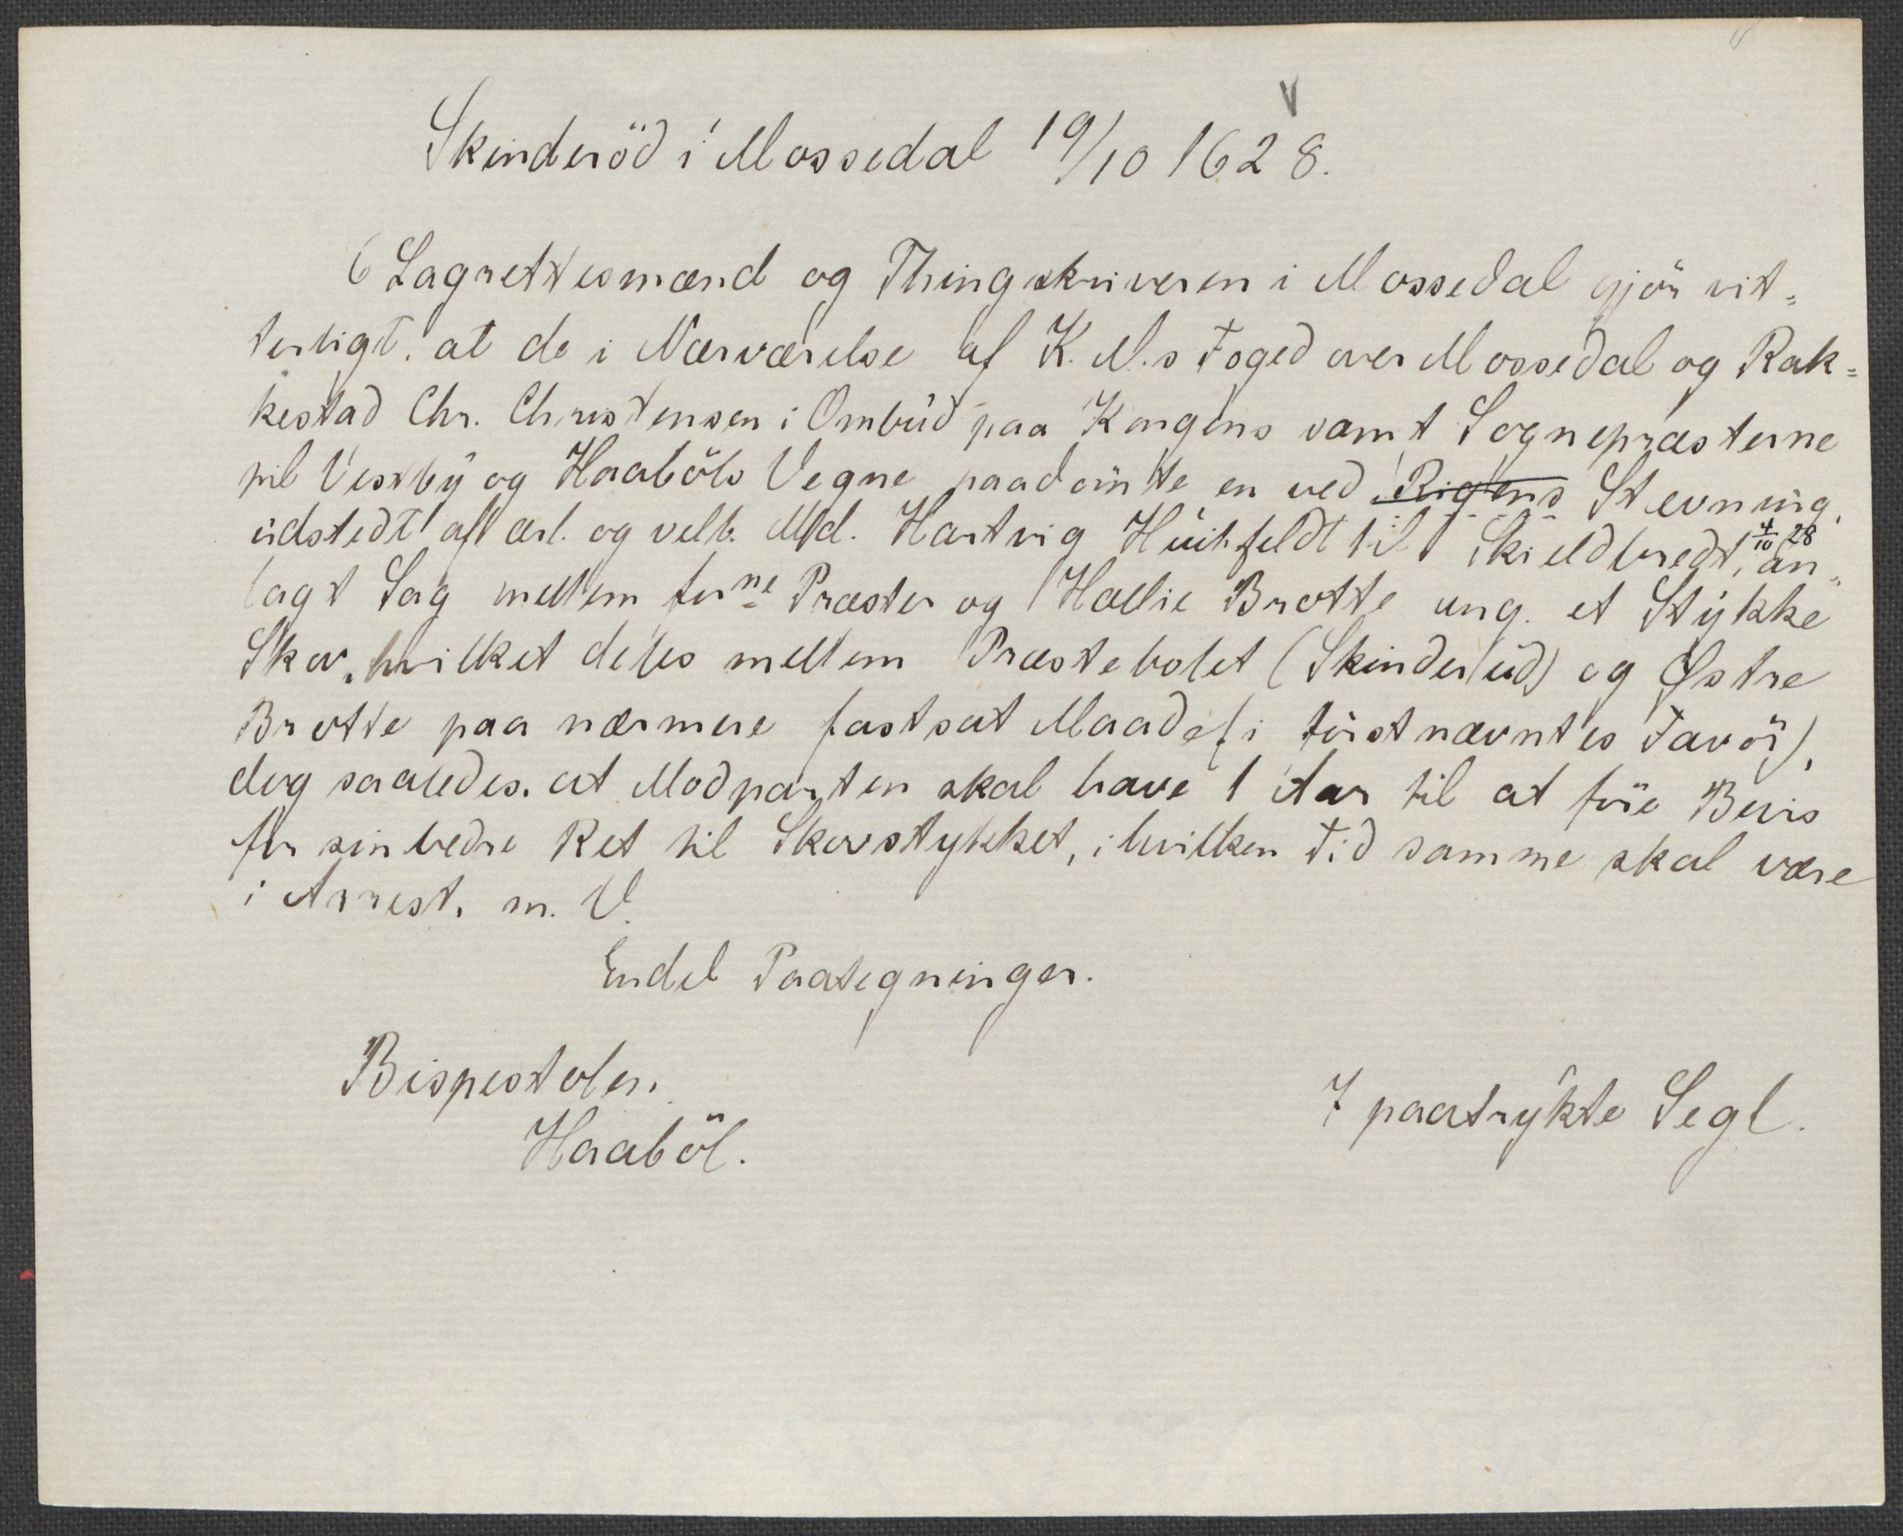 Skinderöd i Mossedal 19/10 1628.
6 Lagrettesmænd og Thingskriveren i Mossedal gjör vit=
terligt, at de i Nærværelse af K. M.s Foged over Mossedal og Rak=
kestad Chr. Christensen i Ombud paa Kongens samt Sognepræsterne
til Vestby og Haaböls Vegne paadömte en ved Rigens Stevning,
udstedt af ærl. og velb. Md. Hartvig Huitfeldt til Skieldbredt, 4/10 28 an=
lagt Sag mellem forne Præster og Hallie Brotte ang. et Stykke
Skov, hvilket deles mellem Præstebolet (Skinderud) og Østre
Brotte paa nærmere fastsat Maade (i förstnævntes Favör),
dog saaledes, at Modparten skal have 1 Aar til at före Bevis
for sin bedre Ret til Skovstykket, i hvilken Tid samme skal være
i Arrest, m. V.
Endel Paategninger.
Bispestolen.
Haaböl.
7 paatrykte Segl.